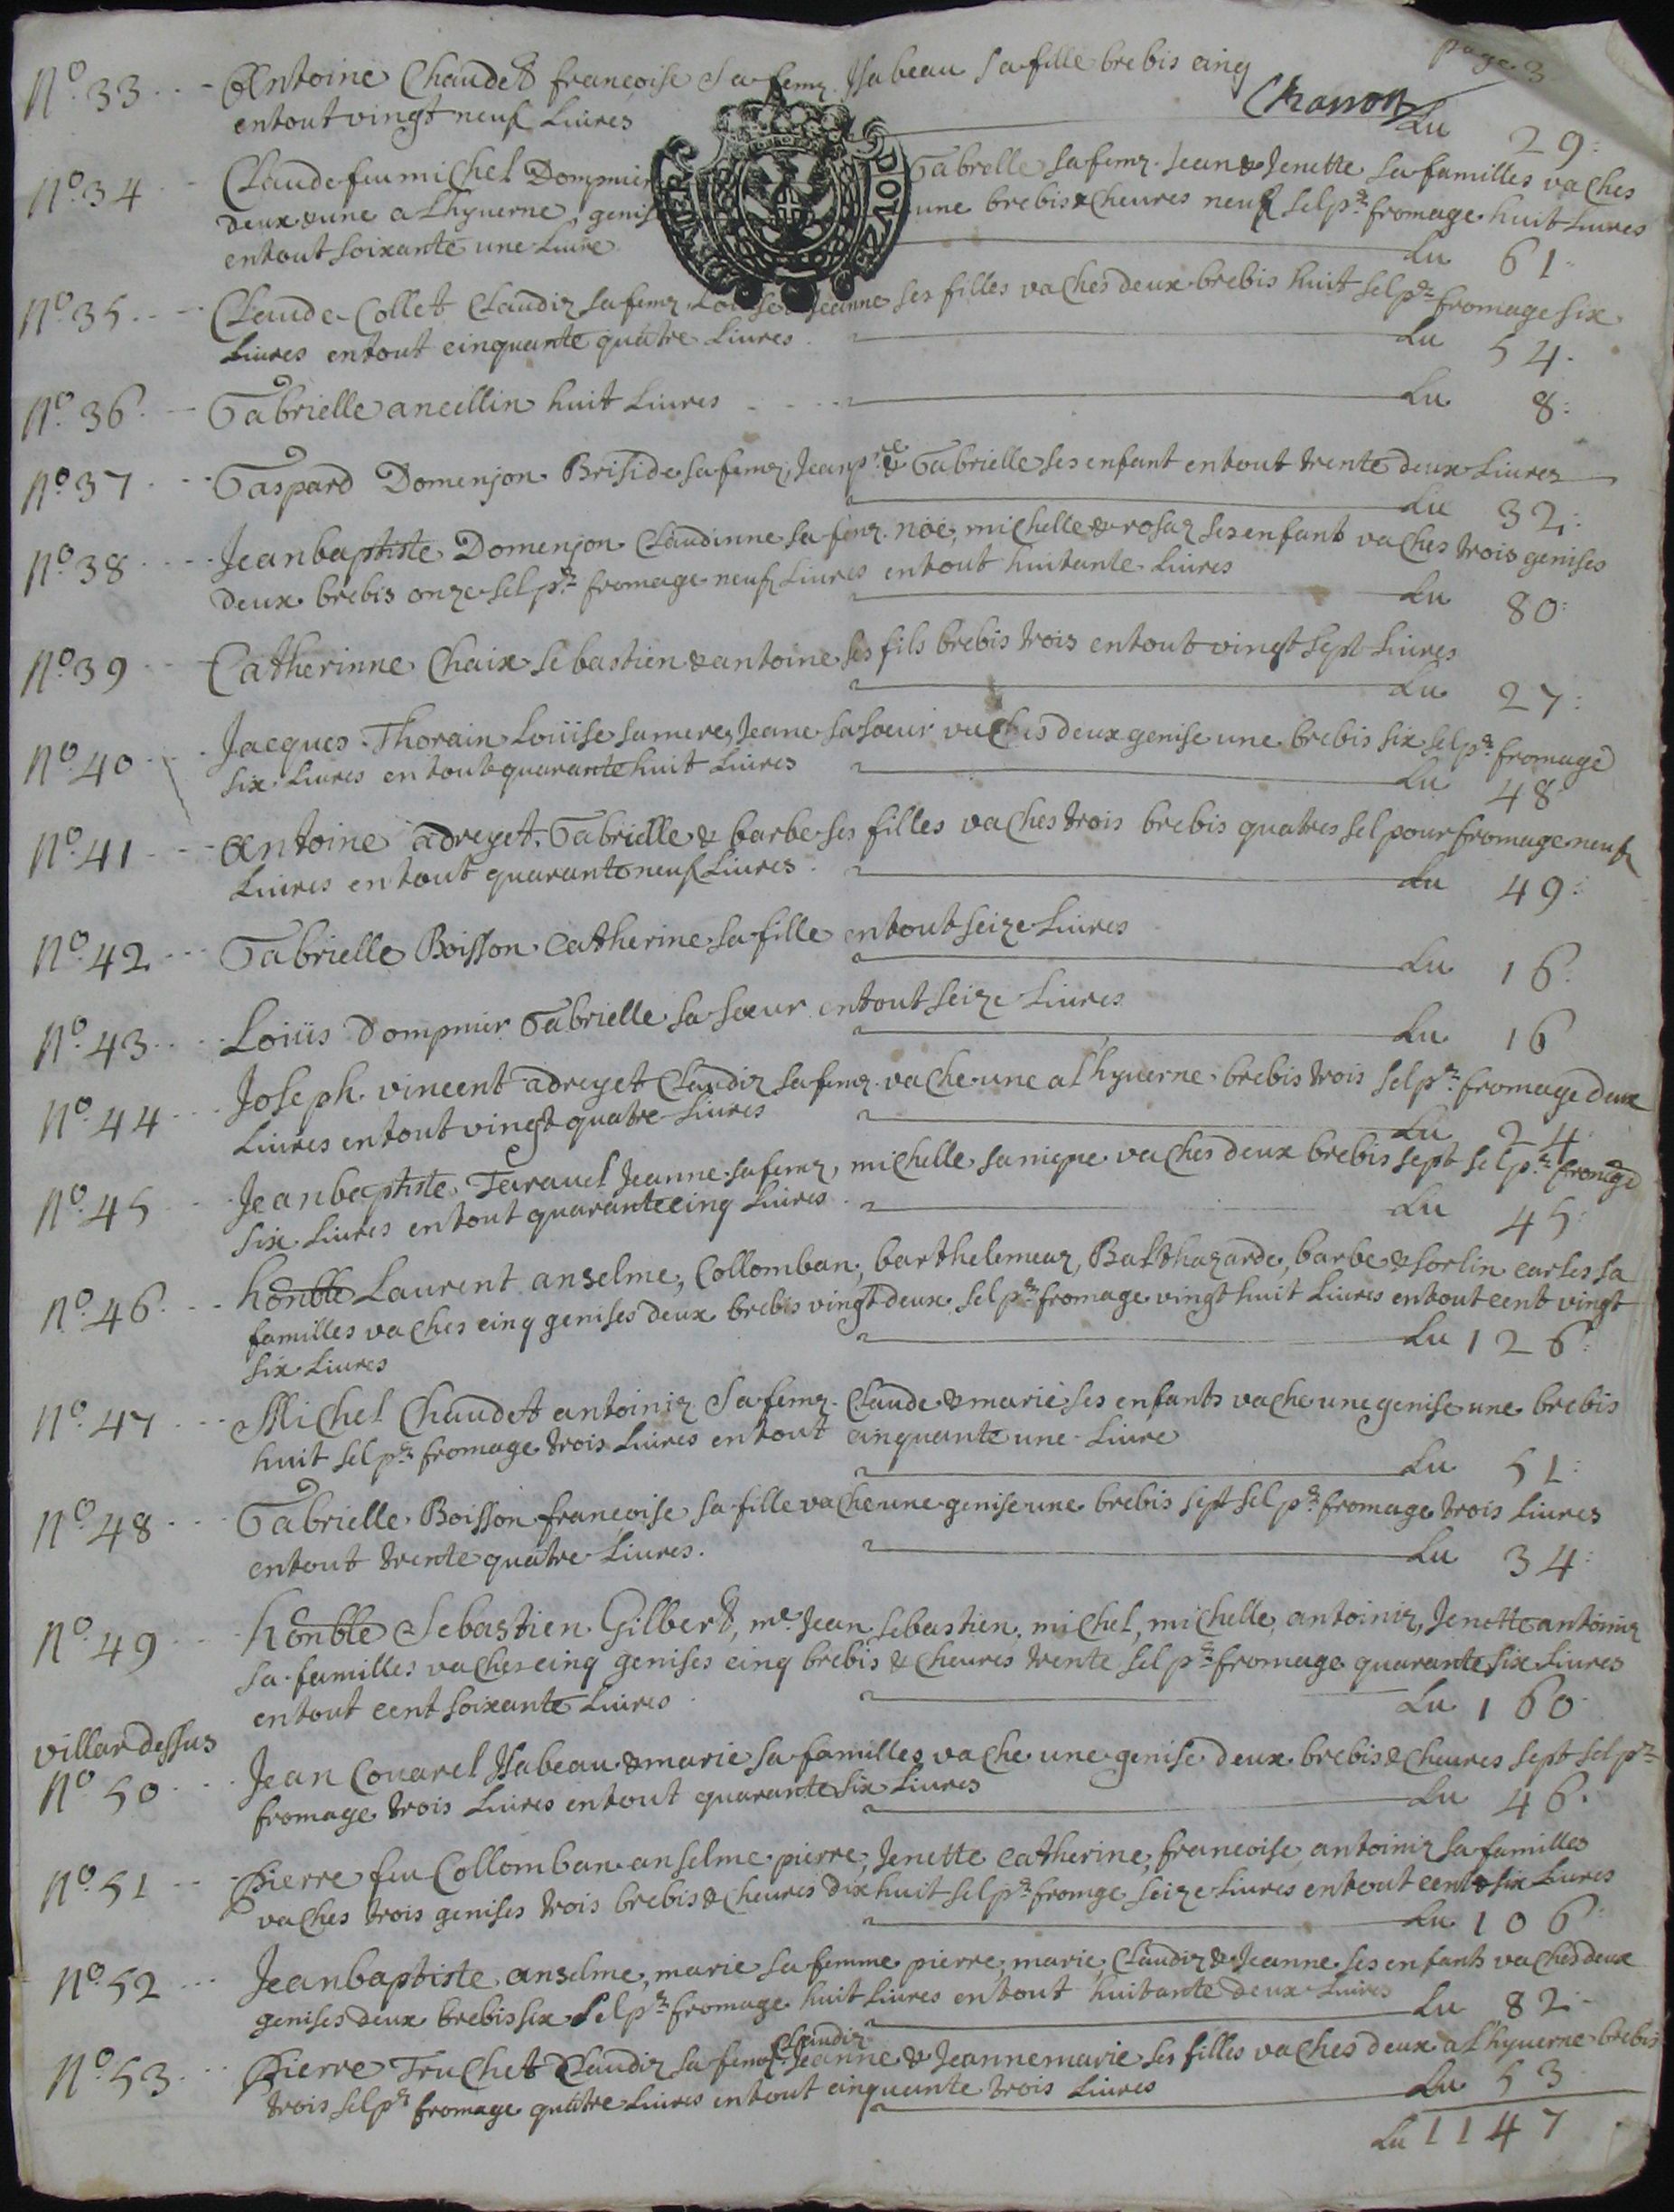 page 3
N.o 33 Antoine Chaudet françoise sa femz Isabeau sa fille brebis cinq
Charron
en tout vingt neuf Liures Lu 29:
N.o 34 Claude feu michel Dompnier Gabrelle sa femz. Jean & Jenette sa familles vaches
deux & une a Lhyuerne, genis une brebis & cheures neuf sel pr fromage huit Liures
en tout soixante une Liure Lu 61
N.o 35 Claude Collet Claudiz sa femz Louise & Jeanne ses filles vaches deux brebis huit sel pr fromage six
Liures en tout cinquante quatre Liures Lu 54.
N.o 36 Gabrielle ancillin huit Liures Lu 8:
N.o 37 Gaspard Domenjon Briside sa femz, Jean pre & Gabrielle ses enfant en tout trente deux Liures
Lu 32:
N.o 38 Jeanbaptiste Domenjon Claudinne sa femz. noë, michelle & rosaz ses enfant vaches trois genises
deux brebis onze sel pr fromage neuf Liures en tout huitante Liures Lu 80:
N.o 39 Catherinne Chaix sebastien & antoine ses fils brebis trois en tout vingt sept Liures
Lu 27:
N.o 40 Jacques Thorain Loüise sa mere, Jeane sa soeur vaches deux genise une brebis six sel pr fromage
six Liures en tout quarante huit Liures Lu 48
N.o 41 Antoine adreyet, Gabrielle & barbe ses filles vaches trois brebis quatres sel pour fromage neuf
Liures en tout quarante neuf Liures. Lu 49:
N.o 42 Gabrielle Boisson Catherine sa fille en tout seize Liures
Lu 16:
N.o 43 Loüis Dompnier Gabrielle sa soeur en tout seize Liures
Lu 16
N.o 44 Joseph vincent adreyet Claudiz sa femz. vache une a Lhyuerne brebis trois sel pr fromage deux
Liures en tout vingt quatre Liures Lu 24.
N.o 45 Jeanbaptiste Tarauel Jeanne sa femz, michelle sa niepce vaches deux brebis sept sel pr fromge
six Liures en tout quarante cinq Liures Lu 45:
N.o 46 honble Laurent anselme, Collomban, barthelemeaz, Balthazarde, barbe & sorlin carles sa
familles vaches cinq genises deux brebis vingt deux sel pr fromage vingt huit Liures en tout cent vingt
six Liures Lu 126:
N.o 47 Michel Chaudet antoiniz sa femz. Claude & marie ses enfants vache une genise une brebis
huit sel pr fromage trois Liures en tout cinquante une Liure
Lu 51:
N.o 48 Gabrielle Boisson françoise sa fille vache une genise une brebis sept sel pr fromage trois Liures
en tout trente quatre Liures. Lu 34:
N.o 49 honble Sebastien Gilbert, me Jean sebastien, michel, michelle, antoiniz, Jenette antoiniz
sa familles vaches cinq genises cinq brebis & cheures trente sel pr fromage quarante six Liures
en tout cent soixante Liures Lu 160
villar dessus
N.o 50 Jean Couarel Isabeau & marie sa familles vache une genise deux brebis & cheures sept sel pr
fromage trois Liures en tout quarante six Liures Lu 46.
N.o 51 Pierre feu Collomban anselme pierre, Jenette catherine, francoise, antoiniz sa familles
vaches trois genises trois brebis & cheures dix huit sel pr fromge seize Liures en tout cent & six Liures
Lu 106
N.o 52 Jeanbaptiste anselme, marie sa femme pierre, marie, Claudiz & Jeanne ses enfants vaches deux
genises deux brebis six sel pr fromage huit Liures en tout huitante deux Liures Lu 82:
Claudiz
N.o 53 Pierre Truchet Claudiz sa femz. Jeanne & Jeannemarie ses filles vaches deux a Lhyuerne brebis
trois sel pr fromage quatre Liures en tout cinquante trois Liures Lu 53
Lu 1147